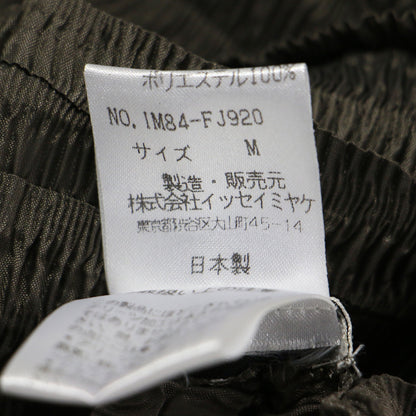 ポリエステル100%
NO. IM84-FJ920
サイズ M
製造・販売元
株式会社イッセイミヤケ
東京都渋谷区大山町45-14
日本製